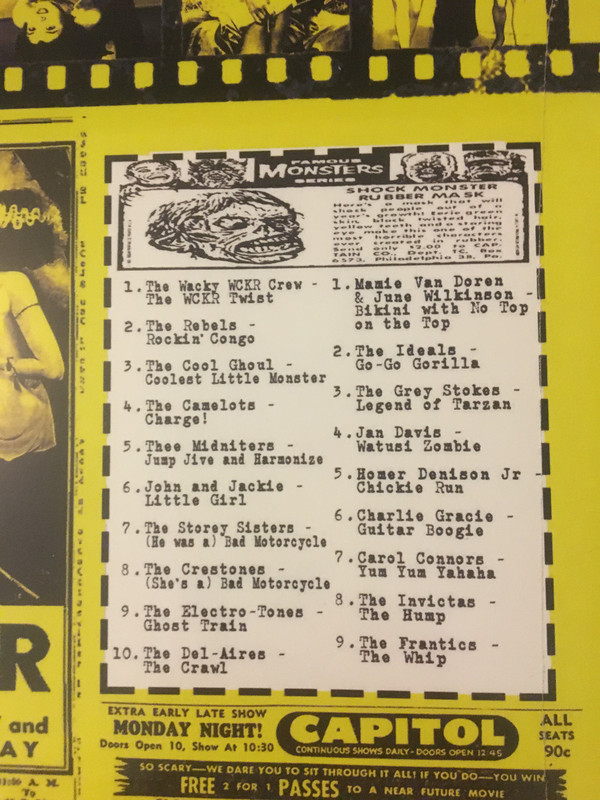 FAMOUS
MONSTERS
SERIES
SHOCK MONSTER
RUBBER MASK
Here's a mask that will
shock people out of a
year's growth! Eerie green
skin, black twisted hair,
yellow teeth and a staring
eye make this one of the
most horrible characters
ever created in rubber.
Send only $2.00 to CAP-
TAIN CO., Dept. TC, Box
6573, Philadelphia 38, Pa.
1. The Wacky WCKR Crew -
The WCKR Twist
2. The Rebels -
Rockin' Congo
3. The Cool Ghoul -
Coolest Little Monster
4. The Camelots -
Charge!
5. Thee Midniters -
Jump Jive and Harmonize
6. John and Jackie -
Little Girl
7. The Storey Sisters -
(He was a) Bad Motorcycle
8. The Crestones -
(She's a) Bad Motorcycle
9. The Electro-Tones -
Ghost Train
10. The Del-Aires -
The Crawl
1. Mamie Van Doren
& June Wilkinson -
Bikini with No Top
on the Top
2. The Ideals -
Go-Go Gorilla
3. The Grey Stokes -
Legend of Tarzan
4. Jan Davis -
Watusi Zombie
5. Homer Denison Jr -
Chickie Run
6. Charlie Gracie -
Guitar Boogie
7. Carol Connors -
Yum Yum Yahaha
8. The Invictas -
The Hump
9. The Frantics -
The Whip
R
and
AY
A. M.
To
EXTRA EARLY LATE SHOW
MONDAY NIGHT!
Doors Open 10, Show At 10:30
CAPITOL
CONTINUOUS SHOWS DAILY - DOORS OPEN 12:45
ALL
SEATS
90c
SO SCARY—WE DARE YOU TO SIT THROUGH IT ALL! IF YOU DO—YOU WIN
FREE 2 FOR 1 PASSES TO A NEAR FUTURE MOVIE